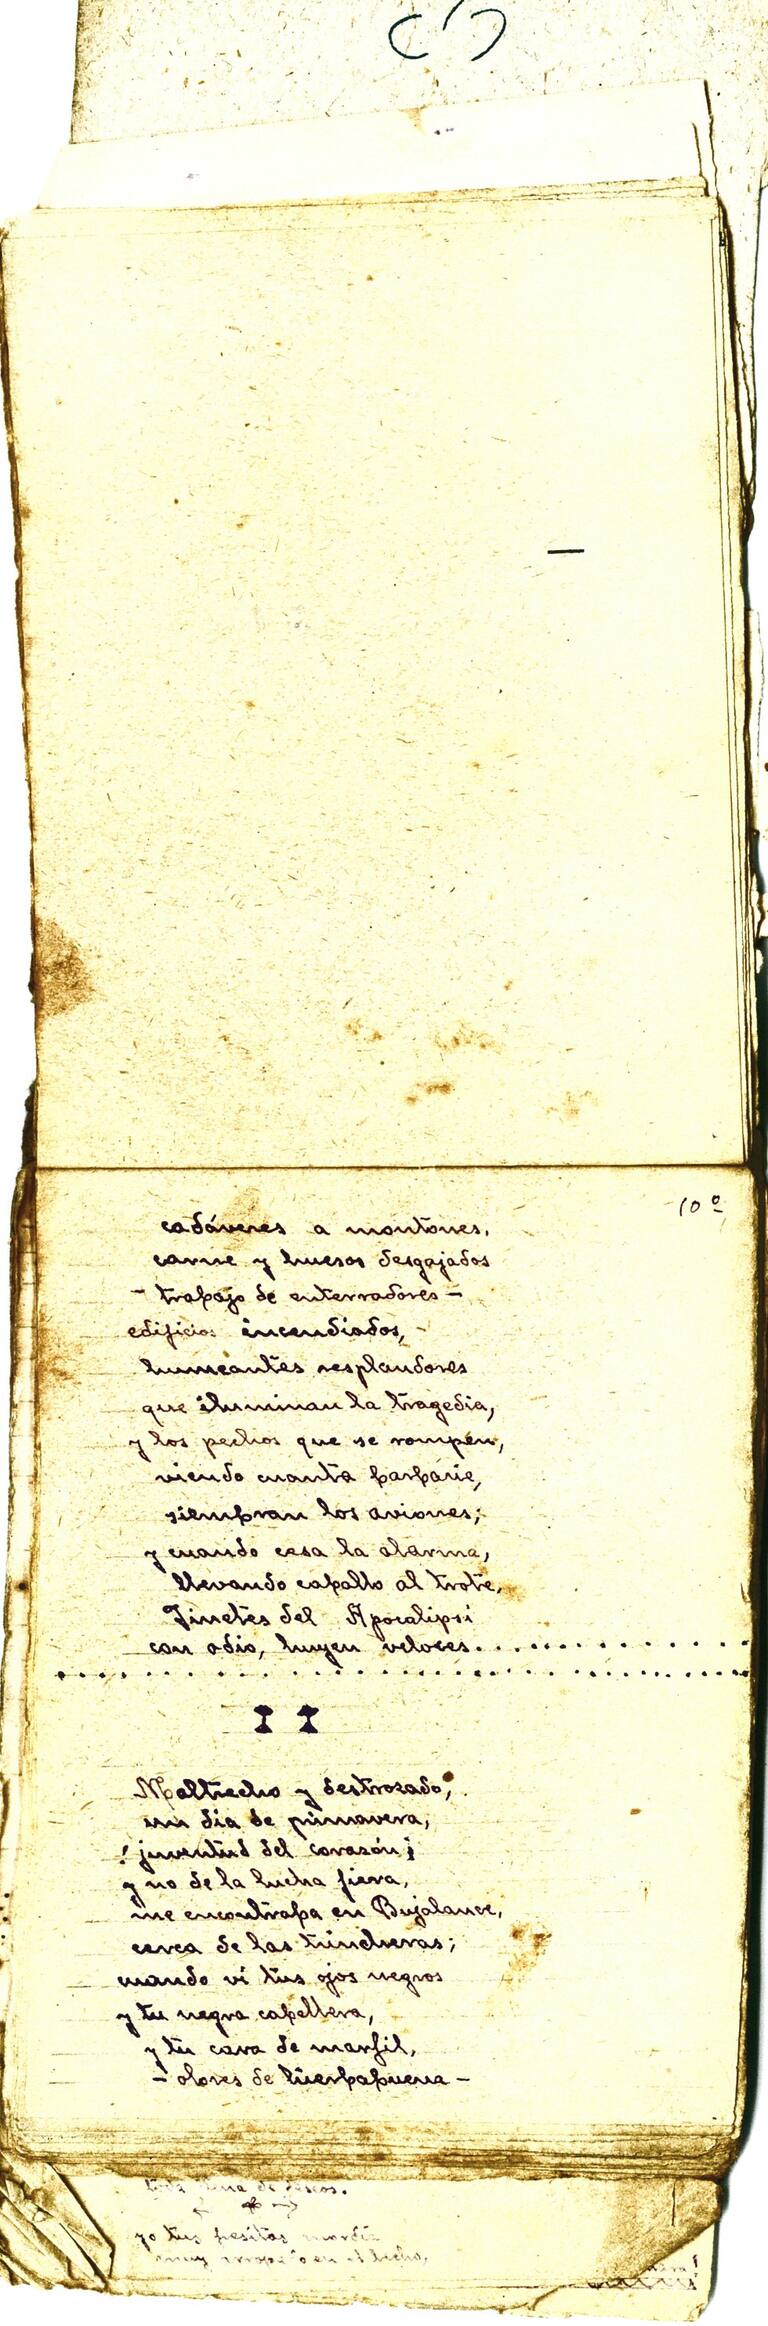 10º
cadáveres a montones,
carne y huesos desgajados
- trabajo de enterradores -
edificios incendiados, -
humeantes resplandores
que iluminan la tragedia,
y los pechos que se rompen,
viendo cuanta barbarie,
siembran los aviones;
y cuando cesa la alarma,
llevando caballo al trote,
Jinetes del Apocalipsi
con odio, huyen veloces...........
II
Maltrecho y destrozado,
un dia de primavera,
¡juventud del corazón¡
y no de la lucha fiera,
me encontraba en Bujalance,
cerca de las trincheras;
cuando vi tus ojos negros
y tu negra cabellera,
y tu cara de marfil,
- olores de hierbabuena -
de deseos.
yo tus besitos
muy en el lecho.